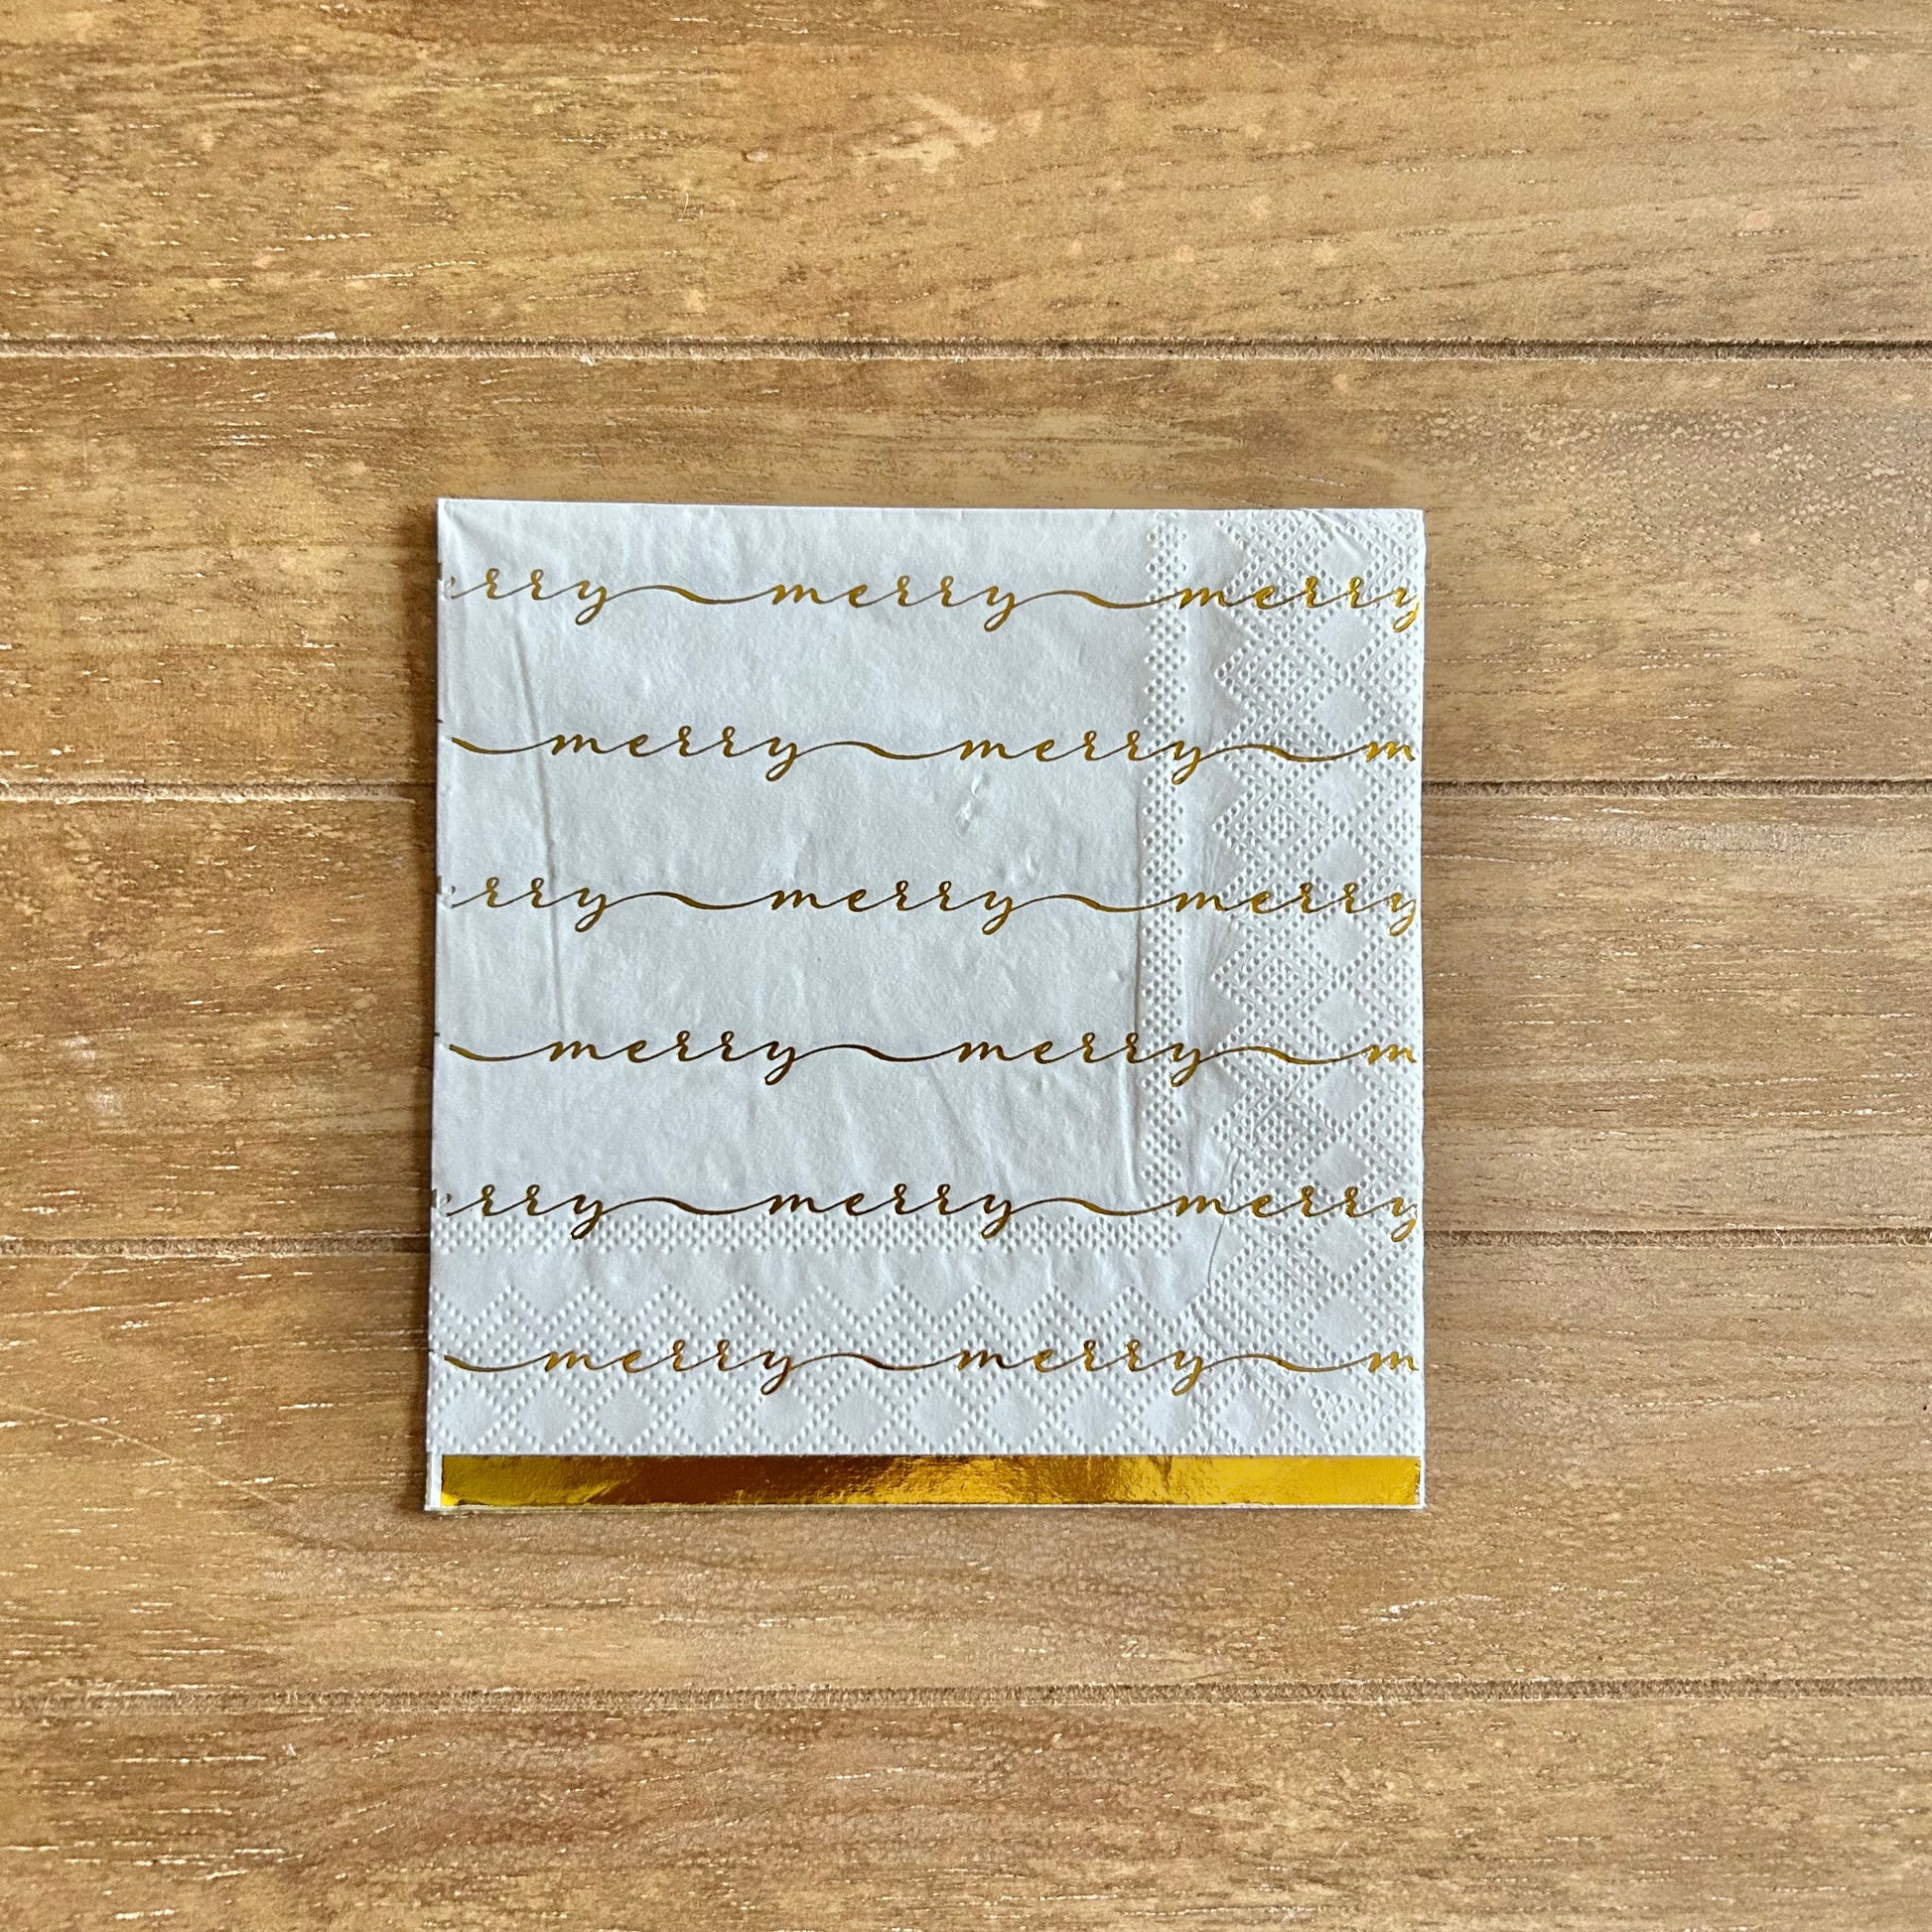 erry merry merry
merry merry m
erry merry merry
merry merry m
erry merry merry
merry merry m